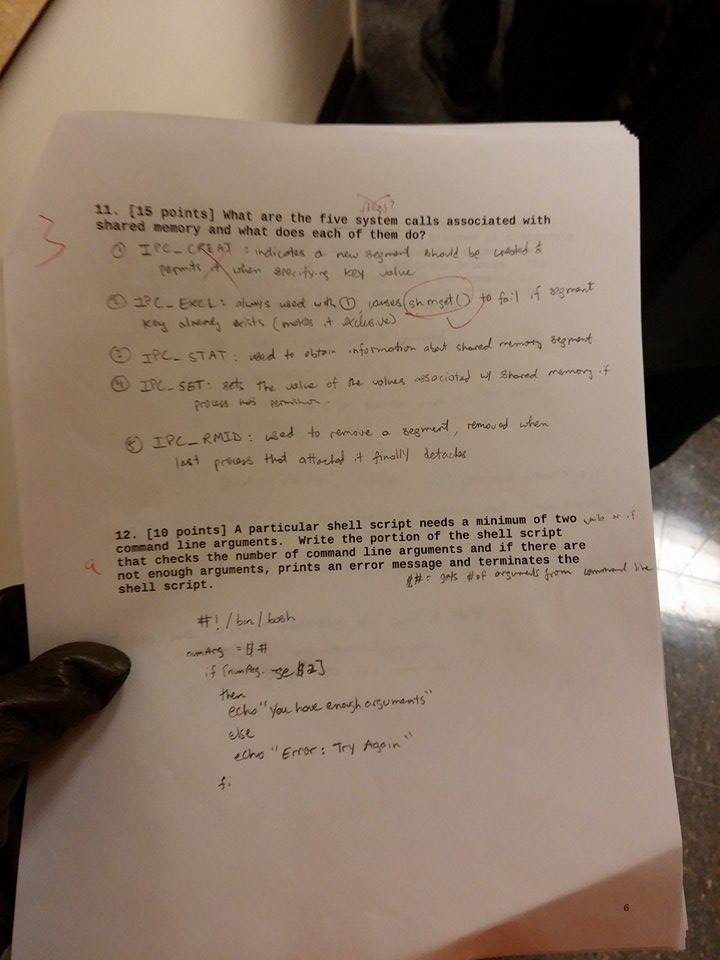 11. [15 points] What are the five system calls associated with
shared memory and what does each of them do?
3
① IPC_CREAT : indicates a new segment should be created &
permits it when specifying key value
② IPC_EXCL: always used with ① causes shmget() to fail if segment
key already exists (makes it exclusive)
③ IPC_STAT : used to obtain information about shared memory segment
④ IPC_SET: sets the value of the values associated w/ shared memory if
process has permission.
⑤ IPC_RMID : used to remove a segment, removed when
last process that attached it finally detaches
12. [10 points] A particular shell script needs a minimum of two
command line arguments. Write the portion of the shell script
that checks the number of command line arguments and if there are
not enough arguments, prints an error message and terminates the
shell script.
9
$# = gets # of arguments from command line
#! /bin/bash
numArg = $#
if [numArg. -ge $2]
then
echo "You have enough arguments"
else
echo "Error: Try Again"
fi
6